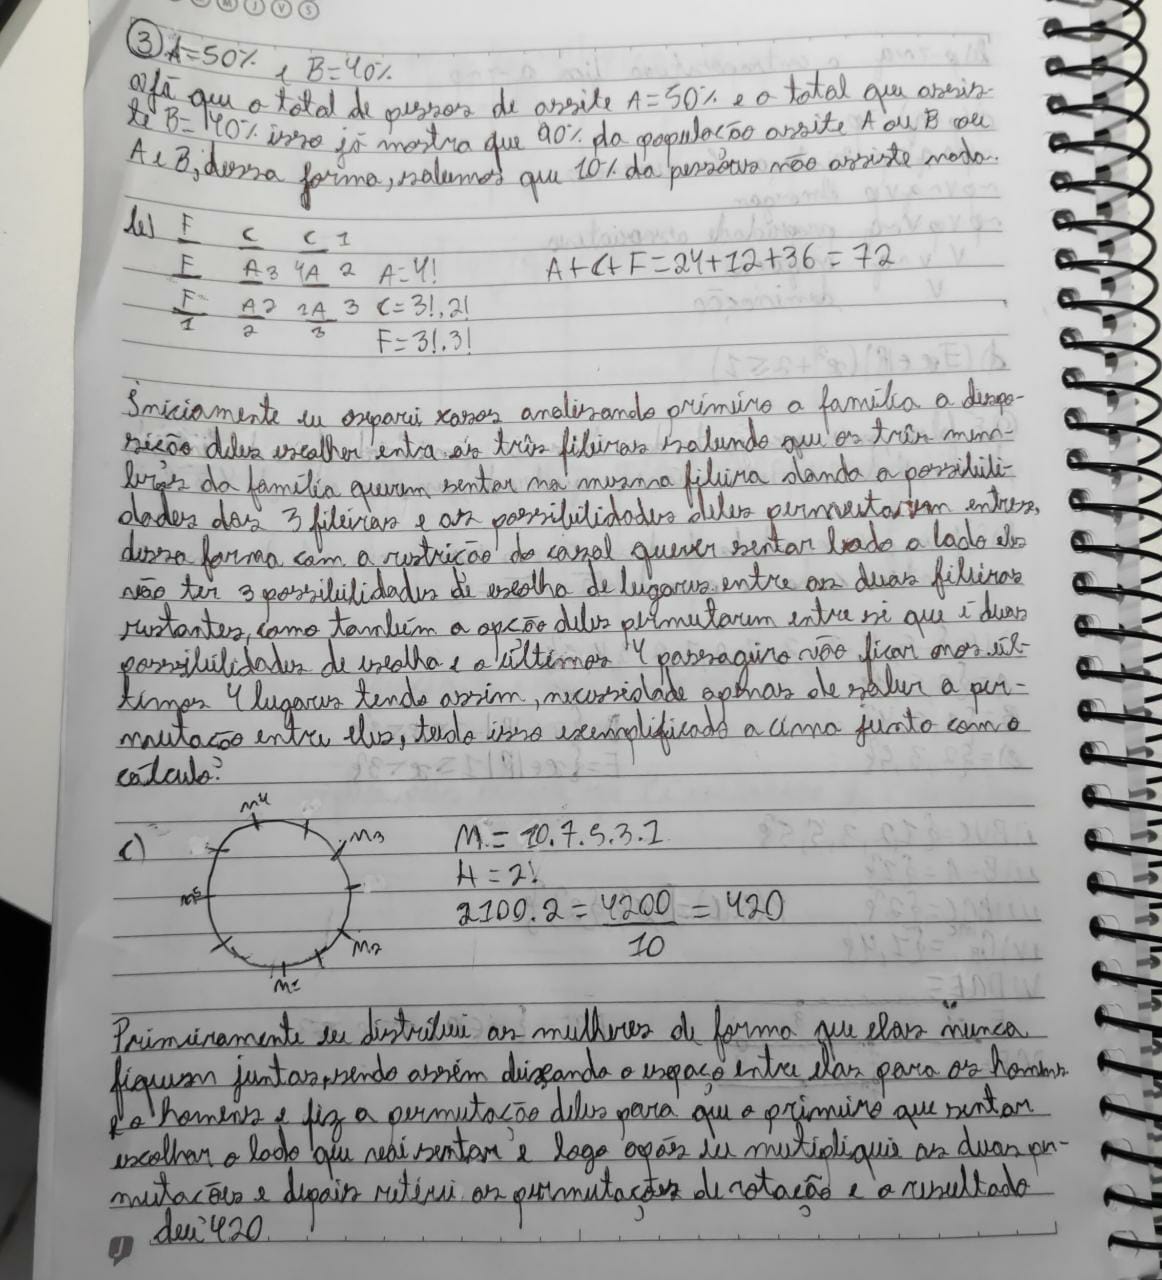 M J V S
③ A=50% e B=40%
a) Já que o total de pessoas de assite A=50% e o total que assis-
te B=40% isso já mostra que 90% da população assite A ou B ou
A e B, dessa forma, sabemos que 10% da pessoas não assiste nada.
b) F C C 1
F A3 4A 2 A=4!
A+C+F=24+12+36=72
F A2 1A 3 C=3!.2!
1 2 3
F=3!.3!
Iniciamente eu separei casos analisando primeiro a família a dispo-
sição deles escolher entra as três fileiras sabendo que os três mem-
bros da família querem sentar na mesma fileira dando a possibili-
dades das 3 fileiras e as possibilidades deles permutarem entre si,
dessa forma com a restrição do casal querer sentar lado a lado eles
vão ter 3 possibilidades de escolha de lugares entre as duas fileiras
restantes, como também a opção deles permutarem entre si que é duas
possibilidades de escolha e o últimos 4 passageiro vão ficar nos úl-
timos 4 lugares tendo assim, necessidade apenas de saber a per-
mutação entre eles, tendo isso exemplificado a cima junto com o
cálculo.
c) M4
M3
M5
M2
M1
M = 10.7.5.3.1
H = 2!
2100.2 = 4200 = 420
10
Primeiramente eu distribui as mulheres de forma que elas nunca
fiquem juntas, sendo assim deixando o espaço entre elas para os homens
e o homens e fiz a permutação deles para que o primeiro que sentar
escolhar o lado que vai sentar e logo após eu multipliquei as duas per-
mutações e depois retirei as permutações de rotação e o resultado
deu 420